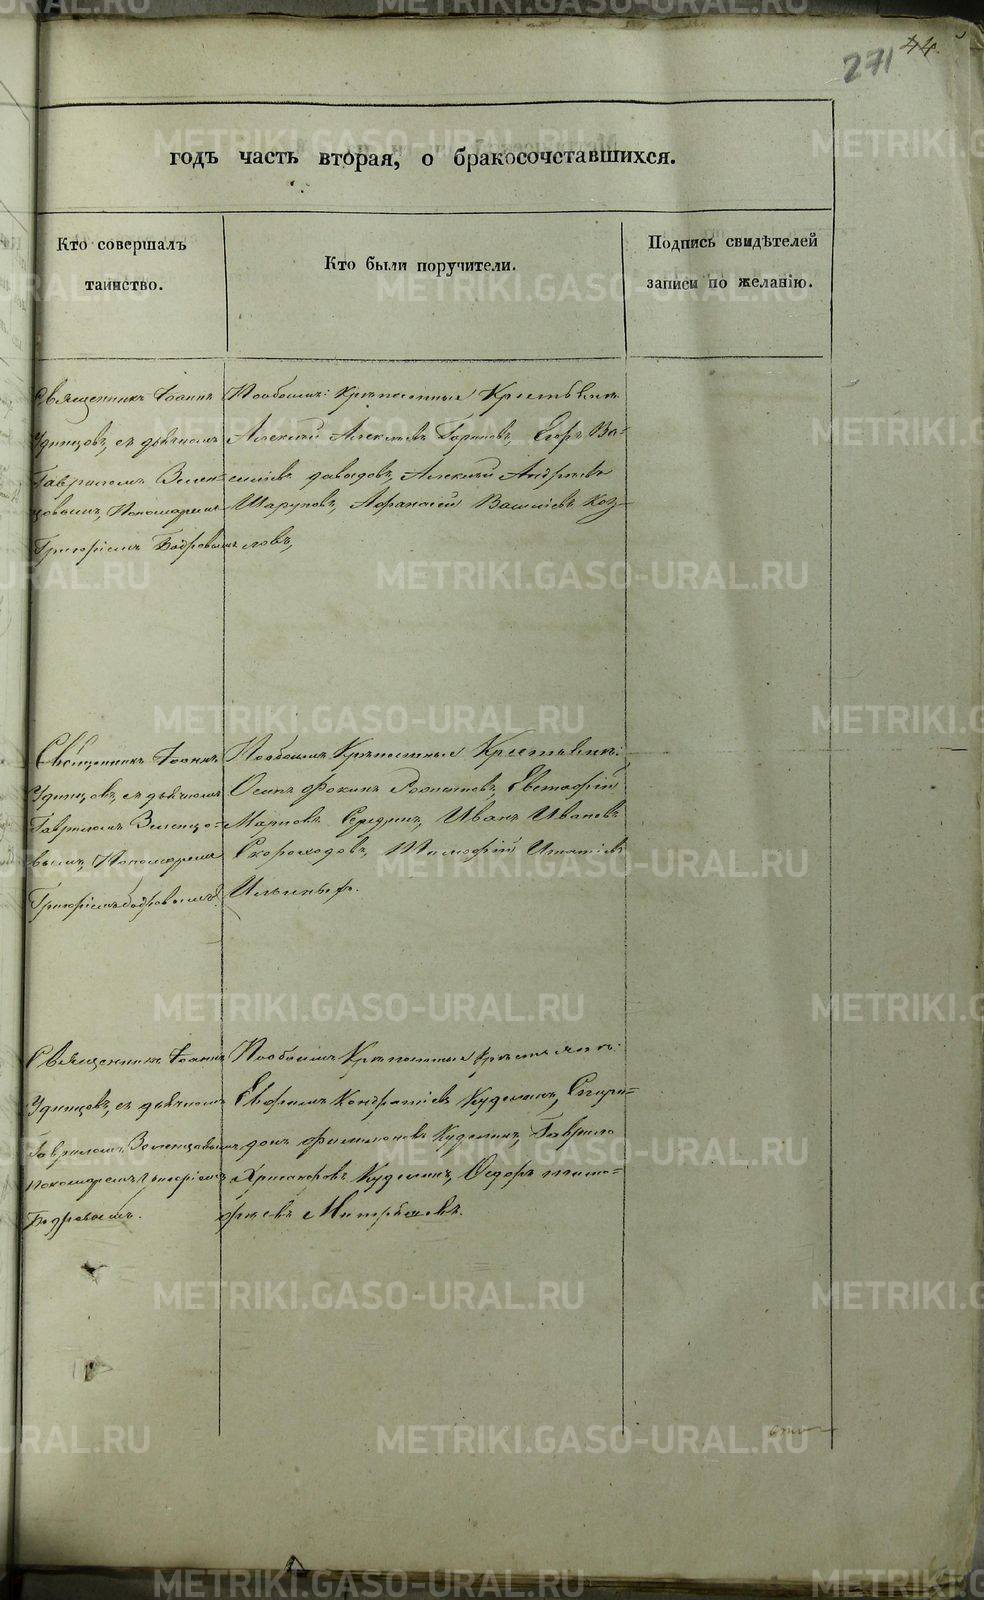 METRIKI.GASO-URAL.RU
271 44.
годъ часть вторая, о бракосочетавшихся.
Кто совершалъ
таинство.
Кто были поручители.
Подпись свидѣтелей
записи по желанію.
Священникъ Іоаннъ
Удинцовъ, съ дьячкомъ
Гавриломъ Зелен-
цовымъ, Пономаремъ
Григоріемъ Бодровымъ
Пообоимъ: Крѣпостные Крестьяне
Алексѣй Алексѣевъ Горинов, Егоръ Ва-
силіевъ Давыдовъ, Алексѣй Андреевъ
Шарупов, Афанасей Василіевъ Коз-
ловъ,
Священникъ Іоаннъ
Удинцовъ, съ дьячкомъ
Гавриломъ Зеленцо-
вымъ, Пономаремъ
Григоріемъ Бодровымъ
Пообоимъ Крѣпостные Крестьяне:
Осипъ Фокинъ Евстафій
Марковъ Середкин, Иванъ Ивановъ
Скороходовъ, Тимофѣй Игнатіевъ
Ильиныхъ.
Священникъ Іоаннъ
Удинцовъ, съ дьячкомъ
Гавриломъ Зеленцовымъ
пономаремъ Григоріемъ
Бодровымъ.
Пообоимъ Крѣпостные крестьяне:
Ефримъ Кондратіевъ Куделинъ, Спири-
донъ Филимоновъ Куделинъ, Гаврило
Христофоровъ Куделинъ, Федоръ Тимо-
фѣевъ